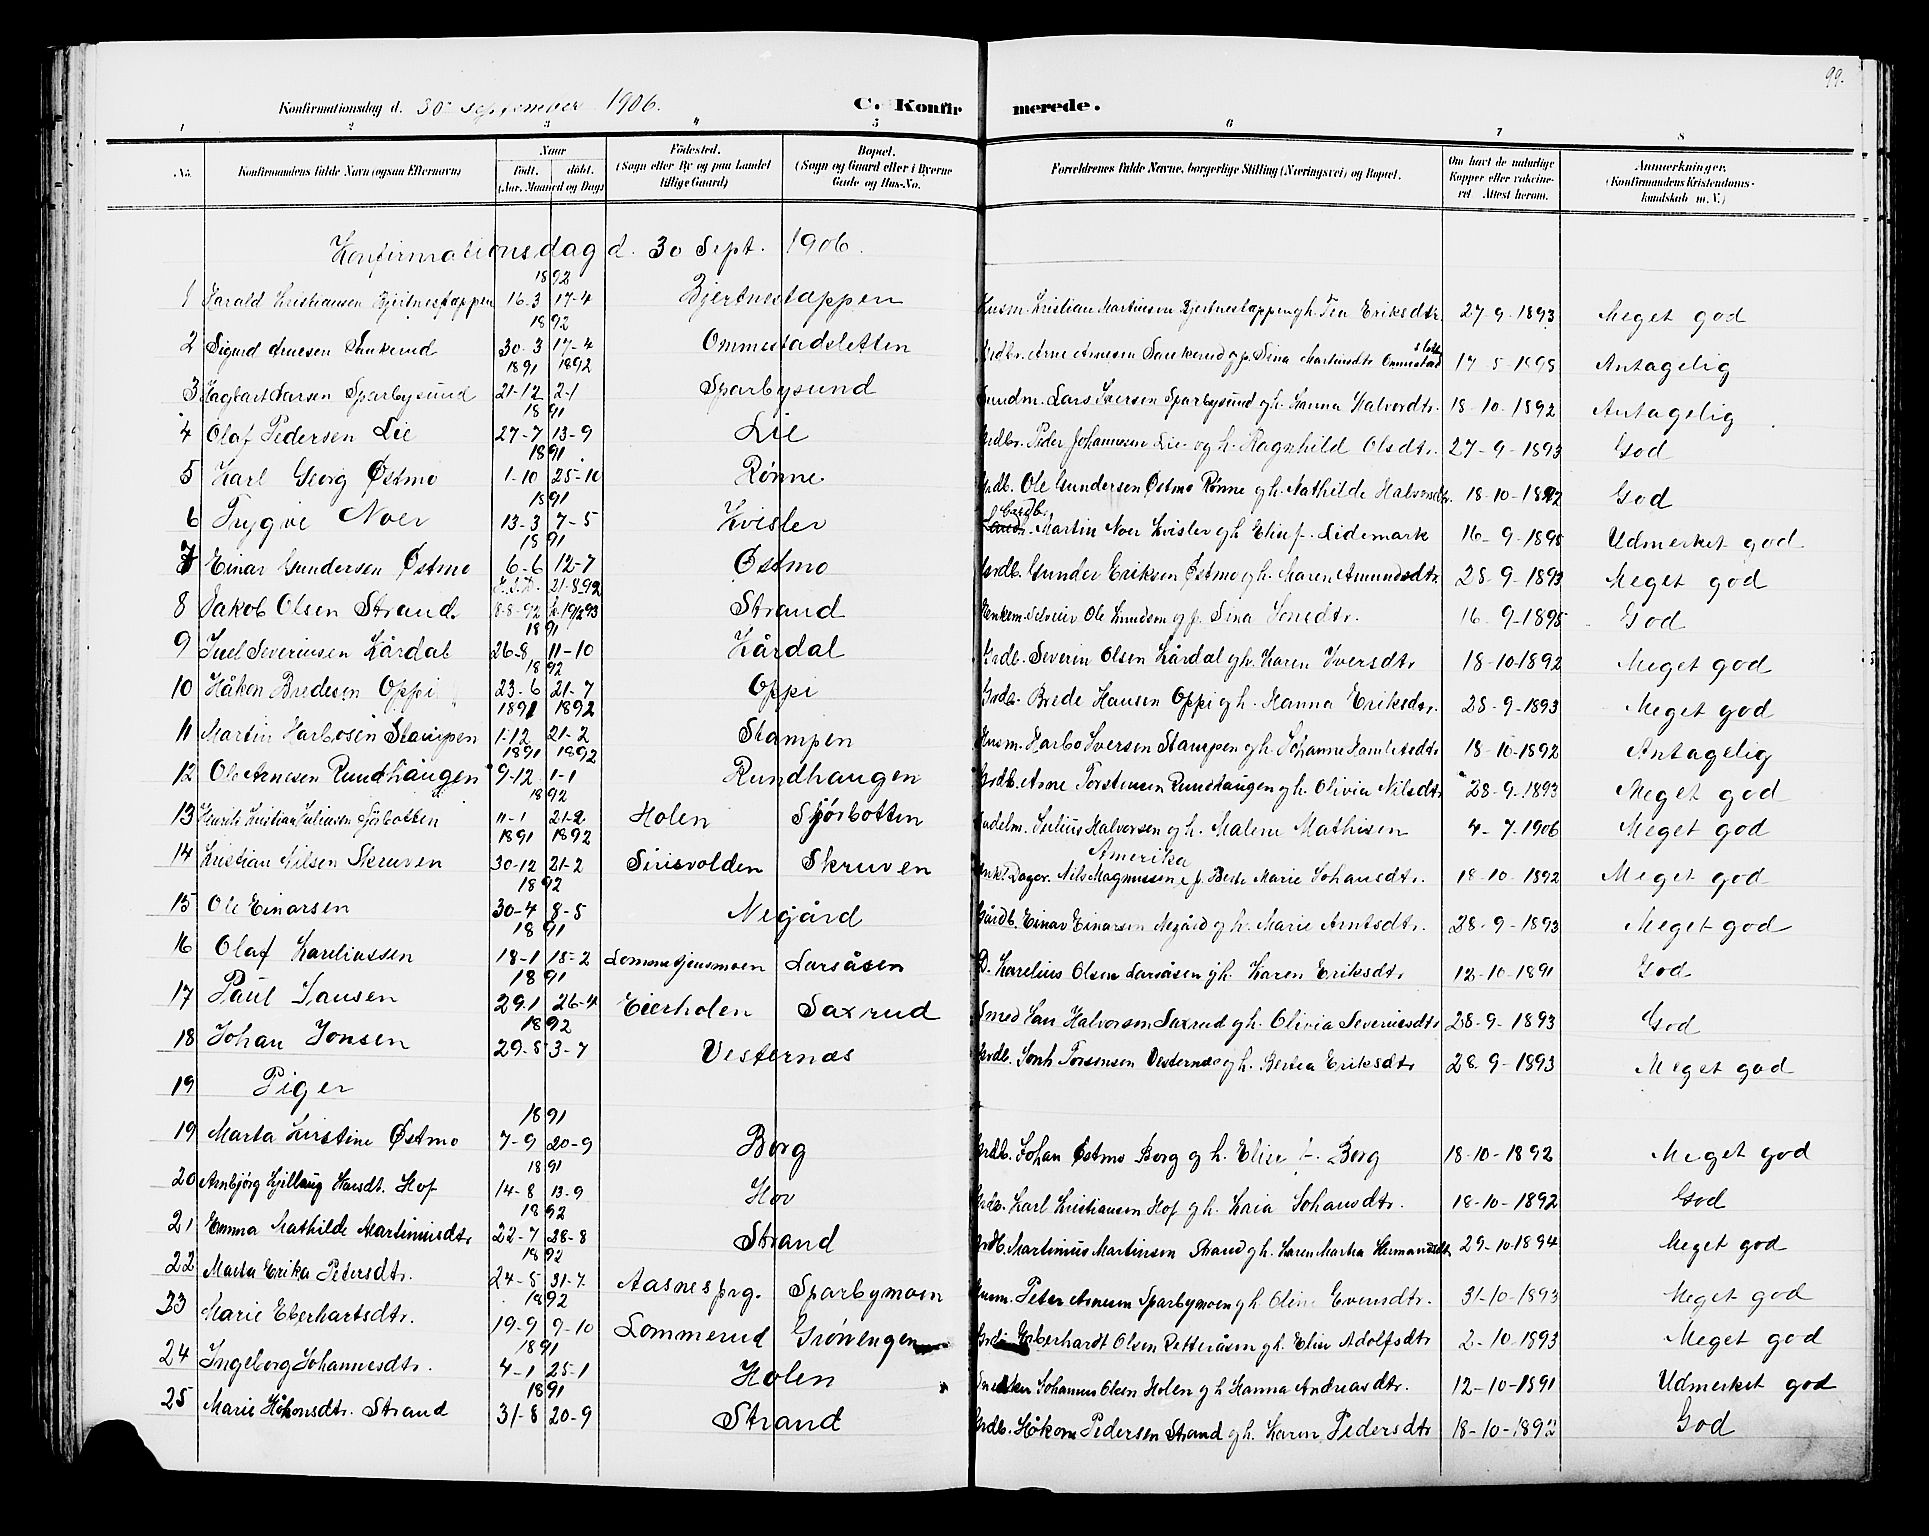 99.
Konfirmationsdag d. 30 september 1906. C. Konfirmerede.
1 2 3 4 5 6 7 8
No. Konfirmandens fulde Navn (ogsaa Efternavn). Naar født. døbt. (Aar, Maaned og Dag). Fødested. (Sogn eller By og paa Landet tillige Gaard) Bopæl. (Sogn og Gaard eller i Byerne Gade og Hus-No. Forældrenes fulde Navne, borgerlige Stilling (Næringsvei) og Bopæl. Om havt de naturlige Kopper eller vakcineret. Attest herom. Anmerkninger. (Konfirmandens Kristendomskundskab m. V.)
Konfirmationsdag d. 30 Sept. 1906.
1892
1 Harald Kristiansen Bjertnestappen 16-3 17-4 Bjertnestappen Husm. Kristian Martinsen Bjertnestappen g h. Tea Eriksdtr. 27-9-1893 Meget god
1892
2 Sigurd Arnesen Saukerud 30-3 17-4 Ommestadsletten Grdbr. Arne Arnesen Saukerud g f. Sina Martinsdtr. Ommestad 17-5-1895 Antagelig
1891 1892
3 Hagbart Larsen Sparbysund 21-12 2-1 Sparbysund Sundm. Lars Iversen Sparbysund g h. Hanna Halvordtr. 18-10-1892 Antagelig
1891
4 Olaf Pedersen Lie 27-7 13-9 Lie Grdbr. Peder Johannesen Lie og h. Ragnhild Olsdtr. 27-9-1893 God
1891
5 Karl Georg Østmo 1-10 25-10 Rønne Grdb. Ole Gundersen Østmo Rønne g h. Mathilde Halvorsdtr. 18-10-1892 God
1891
6 Trygve Noer 13-3 7-5 Kvisler Grdb. Martin Noer Kvisler g h Elise f. Lidemark 16-9-1895 Udmerket god
1891
7 Einar Gundersen Østmo 6-6 12-7 Østmo Grdb. Gunder Eriksen Østmo g h. Maren Amundsdtr. 28-9-1893 Meget god
J.D. 21-8 92
8 Jakob Olsen Strand. 8-8-92 k. 19/2 93 Strand Ole Knudsen g f. Sina Jonsdtr. 16-9-1895 God
1891
9 Juel Severinsen Kårdal 26-8 11-10 Kårdal Grdb. Severin Olsen Kårdal g h. Karen Iversdtr 18-10-1892 Meget god
1892
10 Håkon Bredesen Oppi 23-6 21-7 Oppi Grdb. Brede Hansen Oppi g h. Hanna Eriksdtr. 28-9-1893 Meget god
1891 1892
11 Martin Harbosen Stampen 1-12 21-2 Stampen Husm. Harbo Iversen Stampen g h. Johanne 18-10-1892 Antagelig
1891 1892
12 Ole Arnesen Rundhaugen 9-12 1-1 Rundhaugen Grdb. Arne Torstensen Rundhaugen g h. Olivia Nilsdtr 28-9-1893 Meget god
1892
13 Henrik Kristian Juliusen Sjøbotten 11-1 21-2 Holen Sjøsbotten Julius Halvorsen g h. Malene Mathisen 4-7-1906 Meget god
1891 1892 Amerika
14 Kristian Nilsen Skruven 30-12 21-2 Sirisvolden Skruven Nils Magnussen, g f. Berte Marie Johansdtr. 18-10-1892 Meget god
1892
15 Ole Einarsen 30-4 8-5 Negård Gårdb. Einar Einarsen Negård g h. Marie Arntsdtr. 28-9-1893 Meget god
1891
16 Olaf Kareliussen 18-1 15-2 Lommetjensmoen Larsåsen D. Karelius Olsen Larsåsen g h. Karen Eriksdtr 12-10-1891 God
1891
17 Paul Jansen 29-1 26-4 Eierholen Saxrud Smed Jan Halvorsen Saxrud g h. Olivia Severinsdtr 28-9-1893 God
1892
18 Johan Jonsen 29-5 3-7 Vesternæs Grdb. Jonh Torsensen Vesternæs g h. Bertea Eriksdtr 28-9-1893 Meget god
19 Piger
1891
19 Marta Kirstine Østmo 7-9 20-9 Berg Grdb. Johan Østmo Berg g h. Elise f. Berg 18-10-1892 Meget god
1891
20 Arnbjörg Kjellaug Karsdt. Hof 14-8 13-9 Hov Grdb. Karl Kristiansen Hof g h. Kaia Johansdtr. 18-10-1892 God
1892
21 Emma Mathilde Martiniusdtr 22-7 28-8 Strand Grdb. Martinius Martinsen Strand g h. Karen Martha Hermandsdtr 29-10-1894 Meget god
1892
22 Marta Erika Petersdtr. 24-5 31-7 Aasnes prg. Sparbymoen Husm. Peter Arnesen Sparbymoen g h. Oline Evensdtr. 31-10-1893 Meget god
1892
23 Marie Eberhartsdtr. 19-9 9-10 Lommerud Grøvengen Eberhardt Olsen Retteråsen g h. Elise Adolfsdtr 2-10-1893 Meget god
1891
24 Ingeborg Johannesdtr. 4-1 25-1 Holen Snekker Johannes Olsen Holen g h Hanna Andreasdtr. 12-10-1891 Udmerket god
1891
25 Marie Håkonsdtr. Strand 31-8 20-9 Strand Grdb. Håkon Pedersen Strand g h. Karen Pedersdtr 18-10-1892 God